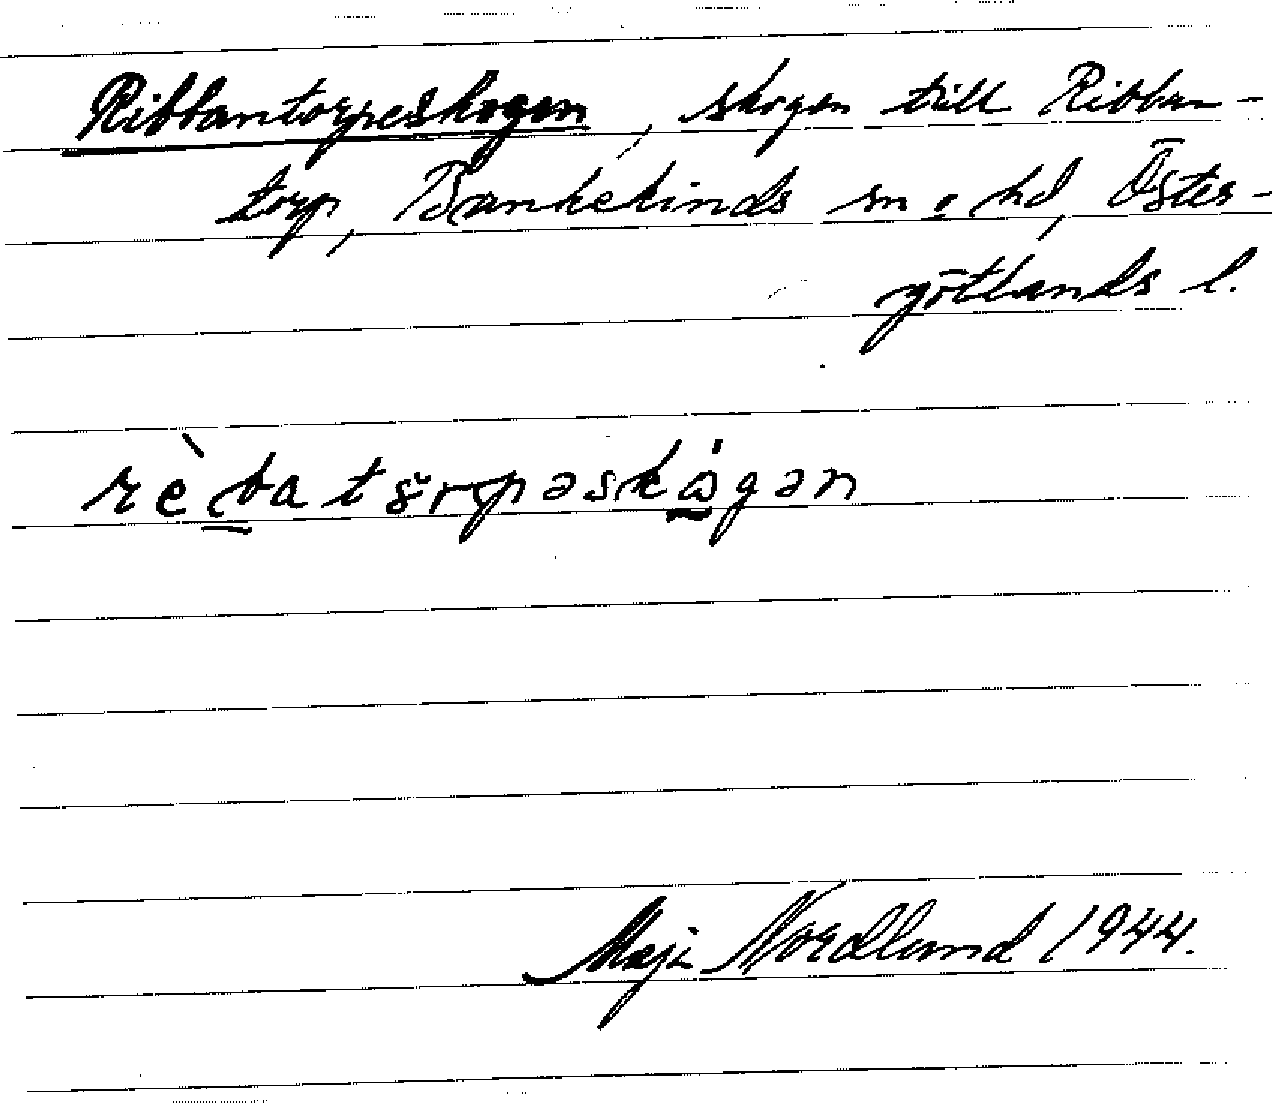 Ribbantorpeskogen, skogen till Ribban-
torp, Bankekinds sn o hd, Öster-
götlands l.
rèbatörpəskógən
Maji Nordlund 1944.